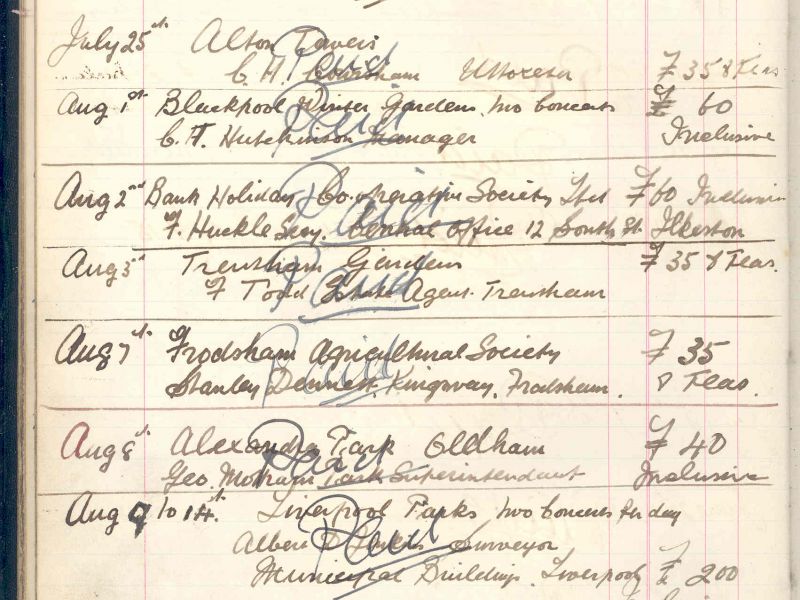 July 25th Alton Towers
C. H. Uttoxeter £35 & Teas
Aug 1st Blackpool Winter Gardens, two Concerts £ 60
C. F. Hutchinson Manager Inclusive
Aug 2nd Bank Holiday Co-operative Society Ltd £60 Inclusive
F. Huckle Secy. Central Office 12 South St. Ilkeston
Aug 3rd Trentham Gardens £ 35 & Teas.
F Todd Estate Agent. Trentham
Aug 7th Frodsham Agricultural Society £ 35
Stanley Dennett. Kingsway, Frodsham. & Teas.
Aug 8th Alexandra Park Oldham £ 40
Geo. Park Superintendant Inclusive
Aug 9 to 14th. Liverpool Parks two Concerts per day
Albert D Surveyor
Municipal Buildings. Liverpool £ 200
Paid
Paid
Paid
Paid
Paid
Paid
Paid